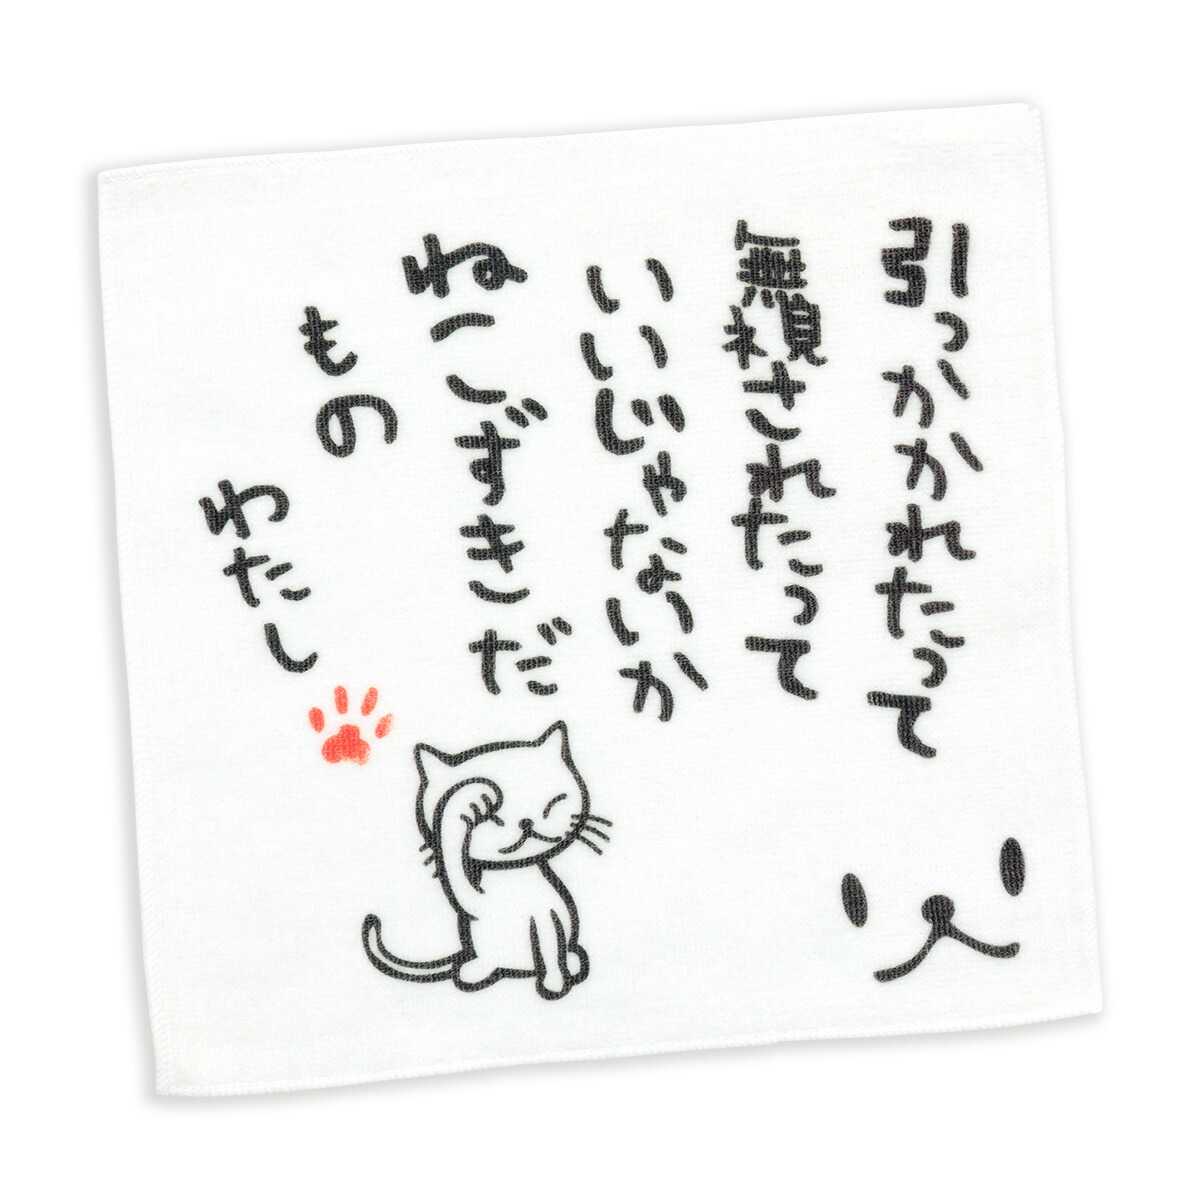 引っかかれたって
無視されたって
いいじゃないか
ねこずきだ
もの
わたし